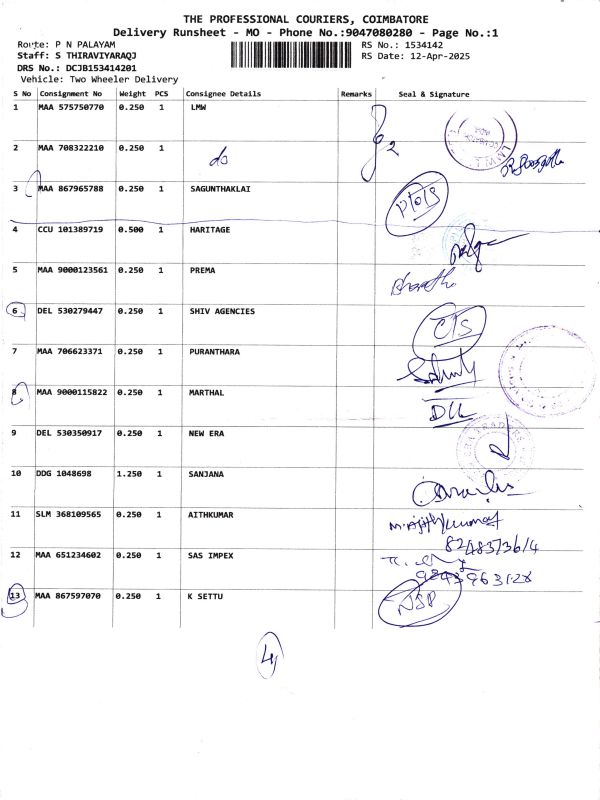 THE PROFESSIONAL COURIERS, COIMBATORE
Delivery Runsheet - MO - Phone No.:9047080280 - Page No.:1
Route: P N PALAYAM RS No.: 1534142
Staff: S THIRAVIYARAQJ RS Date: 12-Apr-2025
DRS No.: DCJB153414201
Vehicle: Two Wheeler Delivery
S No Consignment No Weight PCS Consignee Details Remarks Seal & Signature
1 MAA 575750770 0.250 1 LMW
2 MAA 708322210 0.250 1 do
3 MAA 867965788 0.250 1 SAGUNTHAKLAI
4 CCU 101389719 0.500 1 HARITAGE
5 MAA 9000123561 0.250 1 PREMA
6 DEL 530279447 0.250 1 SHIV AGENCIES
7 MAA 706623371 0.250 1 PURANTHARA
8 MAA 9000115822 0.250 1 MARTHAL
DLL
9 DEL 530350917 0.250 1 NEW ERA
10 DDG 1048698 1.250 1 SANJANA
11 SLM 368109565 0.250 1 AITHKUMAR M.Ajithkumar
12 MAA 651234602 0.250 1 SAS IMPEX
13 MAA 867597070 0.250 1 K SETTU NSP
4